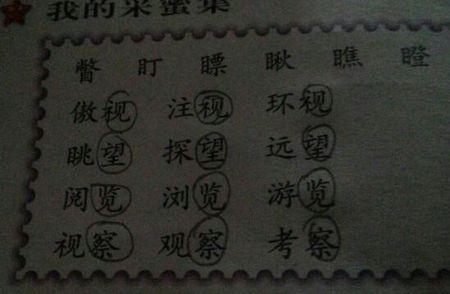 我的采蜜集
瞥 盯 瞟 瞅 瞧 瞪
傲视 注视 环视
眺望 探望 远望
阅览 浏览 游览
视察 观察 考察